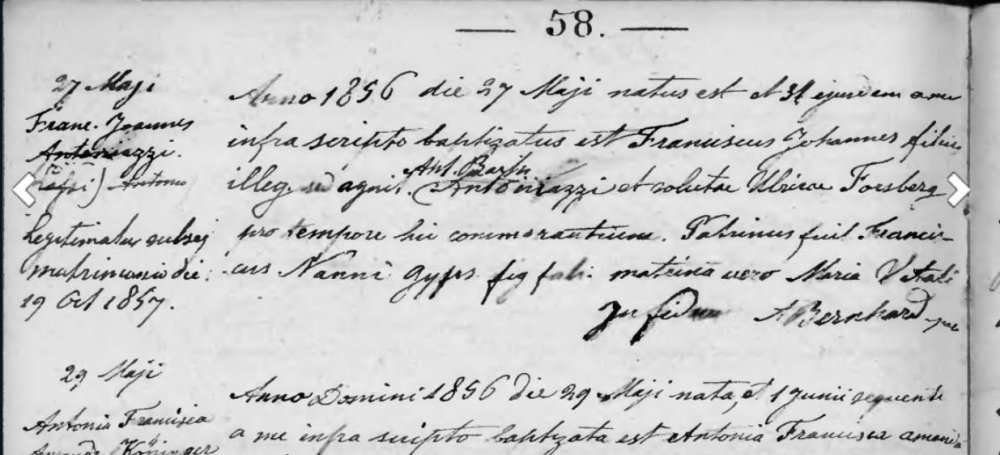 — 58. —
27 Maji
Franc. Joannes
Antoniazzi.
Antonio
Legitimatus subseq
matrimonio die
19 Oct 1857.
Anno 1856 die 27 Maji natus est et 31 ejusdem a me
infra scripto baptizatus est Franciscus Johannes filius
Ant. Barth
illeg. sed agnit. (Antoniazzi et solutae Ulricae Forsberg
pro tempore hic commorantium. Patrinus fuit Francis-
cus Nanni Gyps fig fab. matrina vero Maria Vitali
In fidem A Bernhard
29 Maji
Antonia Francisca
Amanda Köninger
Anno Domini 1856 die 29 Maji nata, et 1 Junii sequente
a me infra scripto baptizata est Antonia Francisca amanda